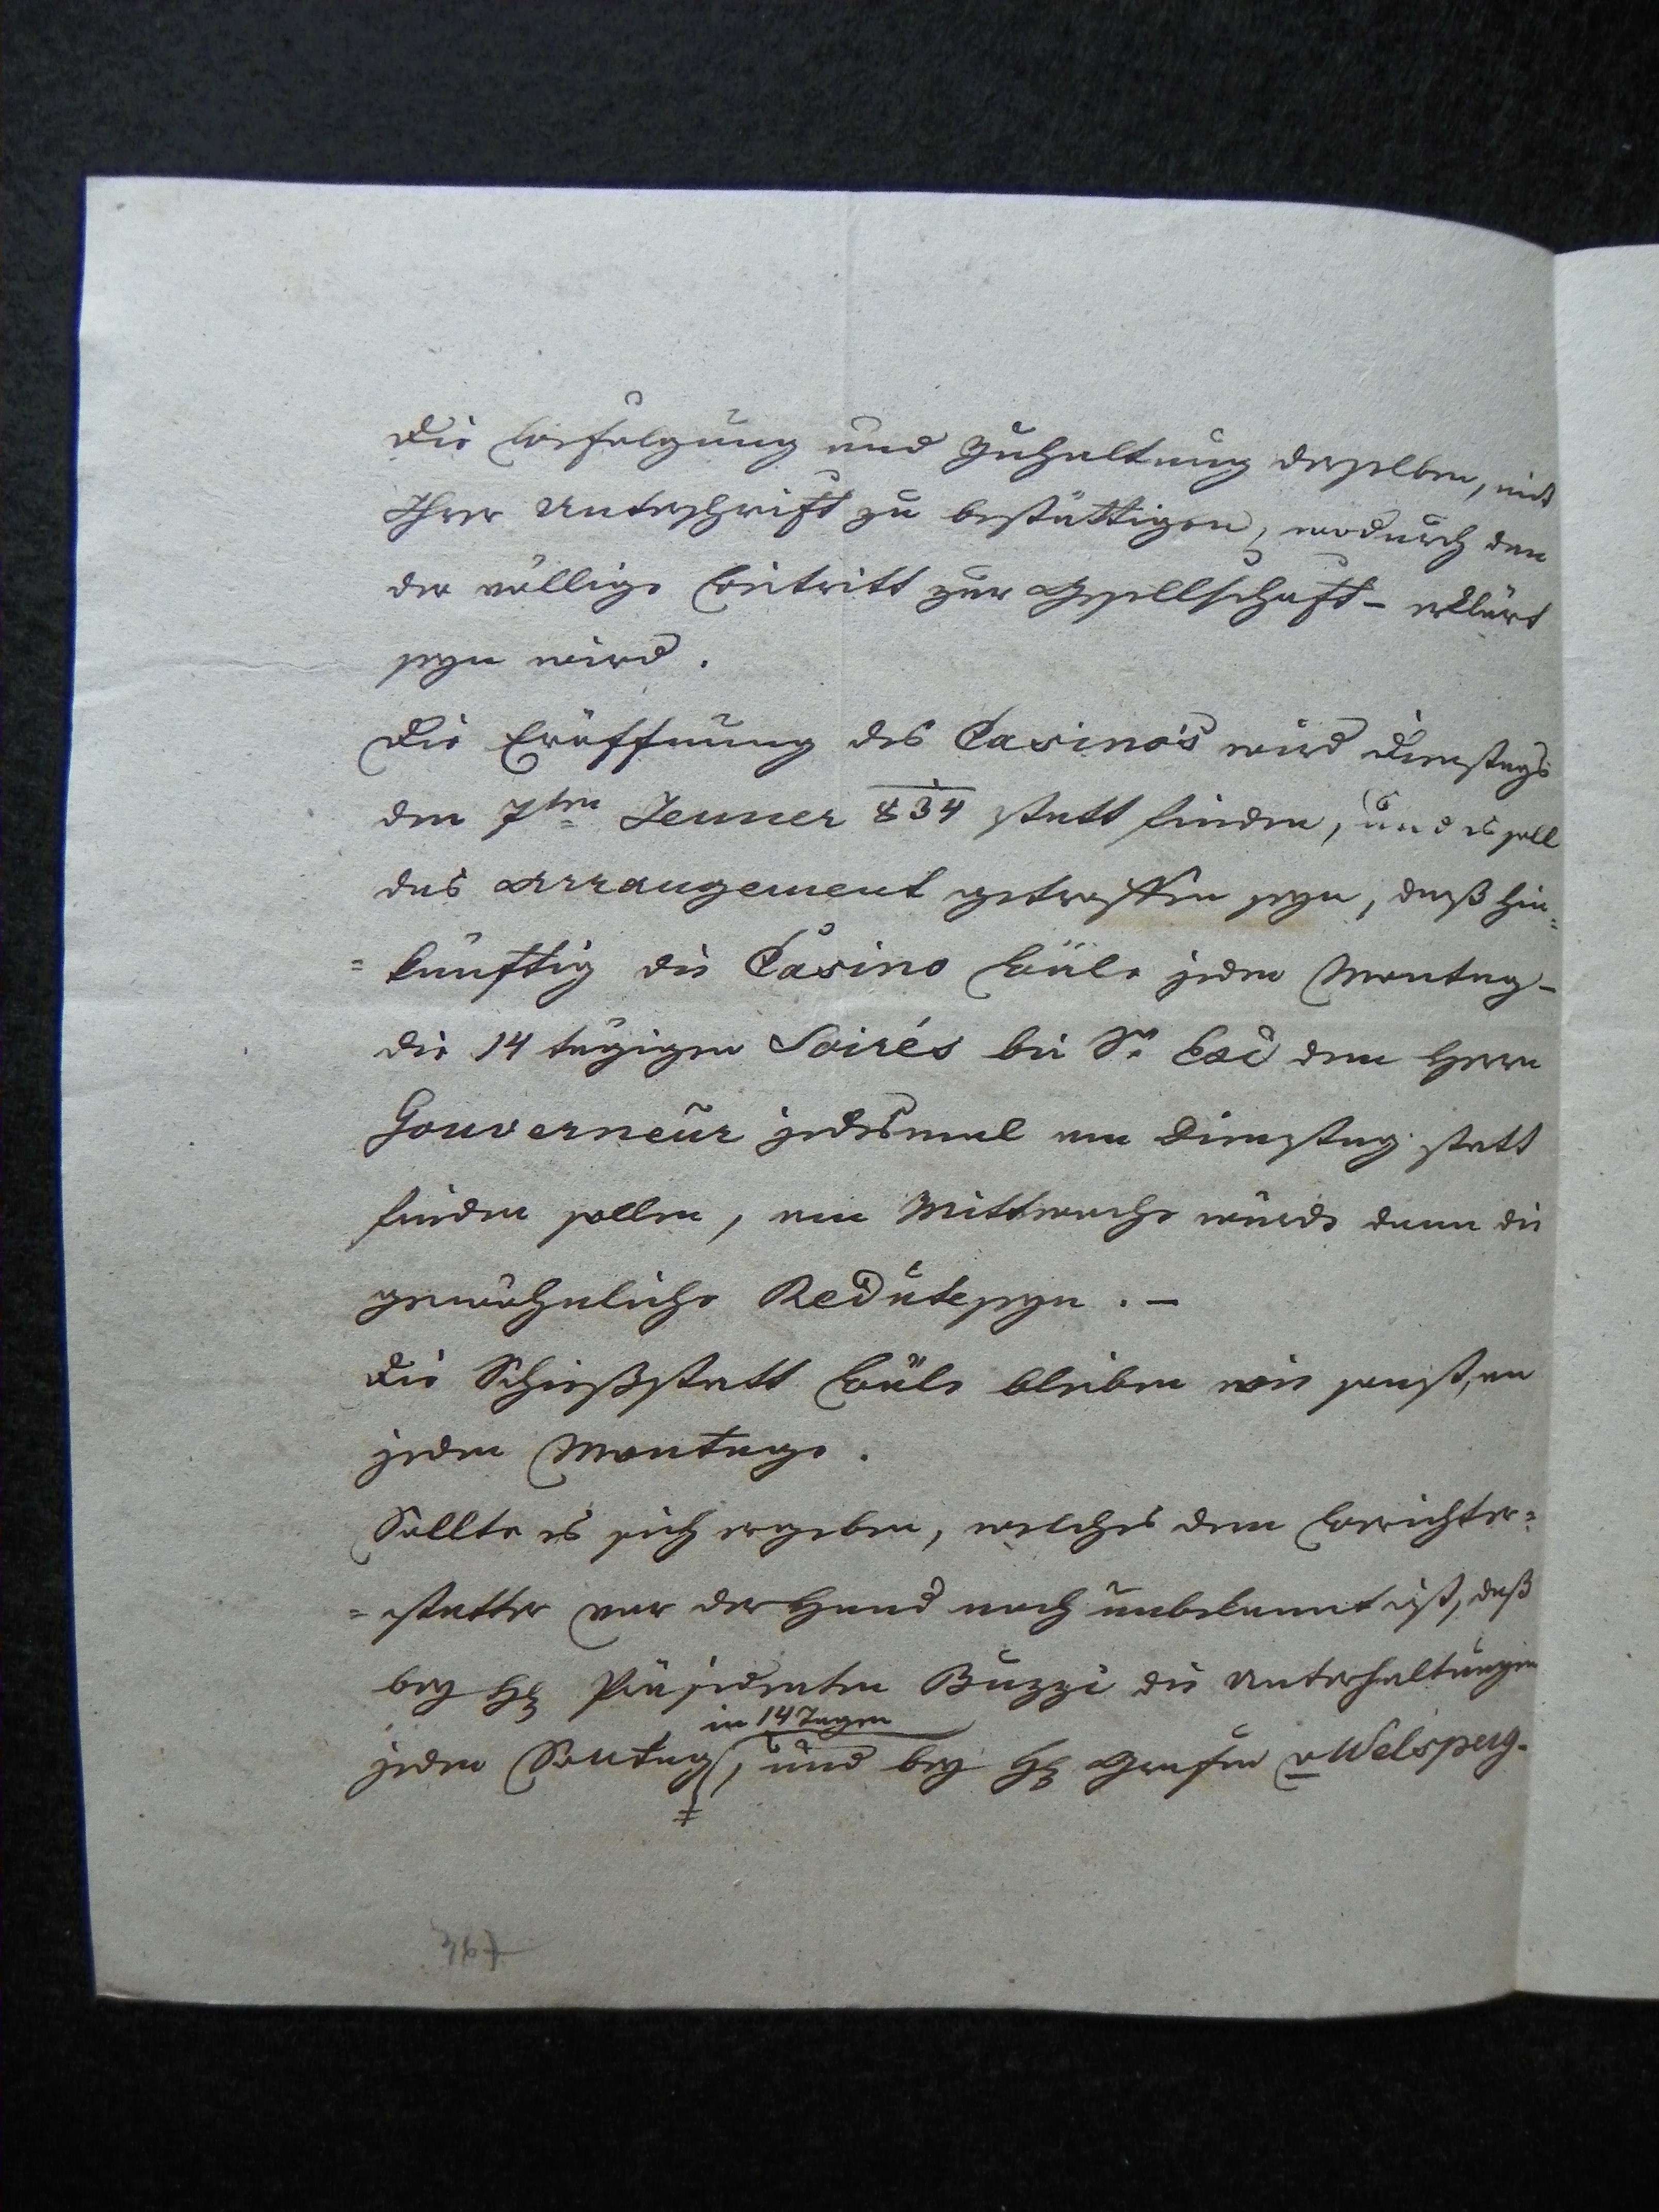 die Befolgung und Zuhaltung derselben, mit
Ihrer Unterschrift zu bestättigen, wodurch dan
der völlige Beitritt zur Gesellschaft – erklärt
seyn wird.
Die Eröffnung des Casino's wird Dienstags
den 7ten Jenner 834 statt finden, und es soll
das Arrangement getroffen seyn, daß hin=
=künftig die Casino Bäle jeden Montag –
die 14 tägigen Soirés bei Sr Exc dem Herrn
Gouverneur jedesmal am Dienstag statt
finden sollen, am Mittwoche würde dann die
gewöhnliche Redute seyn. –
Die Schießstatt Bäle bleiben wie sonst, an
jeden Montage.
Sollte es sich ergeben, welches dem Berichter=
=statter vor der Hand noch unbekannt ist, daß
bey H. Präsidenten Buzzi die Unterhaltungen
in 14 Tagen
jeden Sontag, und bey H. Grafen v Welsperg.